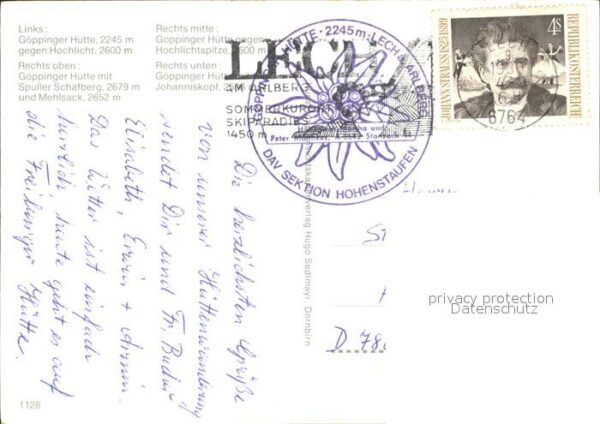 Links:
Göppinger Hütte, 2245 m
gegen Hochlicht, 2600 m
Rechts oben:
Göppinger Hütte mit
Spuller Schafberg, 2679 m
und Mehlsack, 2652 m
Rechts mitte:
Göppinger Hütte gegen
Hochlichtspitze, 2600 m
Rechts unten:
Göppinger Hütte gegen
Johanniskopf, 25
LECH
AM ARLBERG
SOMMERKURORT
SKIPARADIES
1450 m
GÖPPINGER HÜTTE · 2245 m · LECH a. ARLBERG
DAV SEKTION HOHENSTAUFEN
JOHANN STRAUSS SOHN
REPUBLIK ÖSTERREICH
4S
6764
Die herzlichsten Grüße
von unserer Hüttenwanderung
sendet Dir und Fr.
Elisabeth, Erwin + Armin.
Das Wetter ist einfach
herrlich, heute geht es auf
die Freiburger Hütte.
verlag Hugo Sedlmayr, Dornbirn
St
D 78
privacy protection
Datenschutz
1128